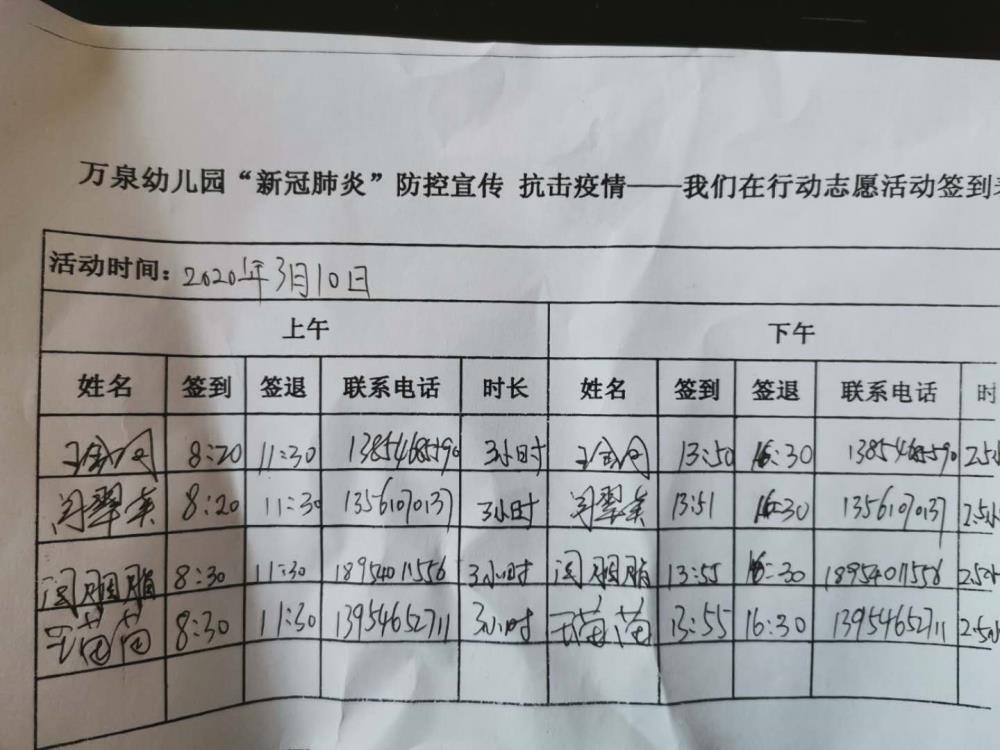 万泉幼儿园“新冠肺炎”防控宣传 抗击疫情——我们在行动志愿活动签到表
活动时间：2020年3月10日
上午 下午
姓名 签到 签退 联系电话 时长 姓名 签到 签退 联系电话 时
8:20 11:30 3小时 13:50 16:30 2.5小
8:20 11:30 13561070137 3小时 13:51 16:30 13561070137 2.5小
闫胭脂 8:30 11:30 18954011556 3小时 闫胭脂 13:55 16:30 18954011556 2.5小
王苗苗 8:30 11:30 13954652711 3小时 王苗苗 13:55 16:30 13954652711 2.5小